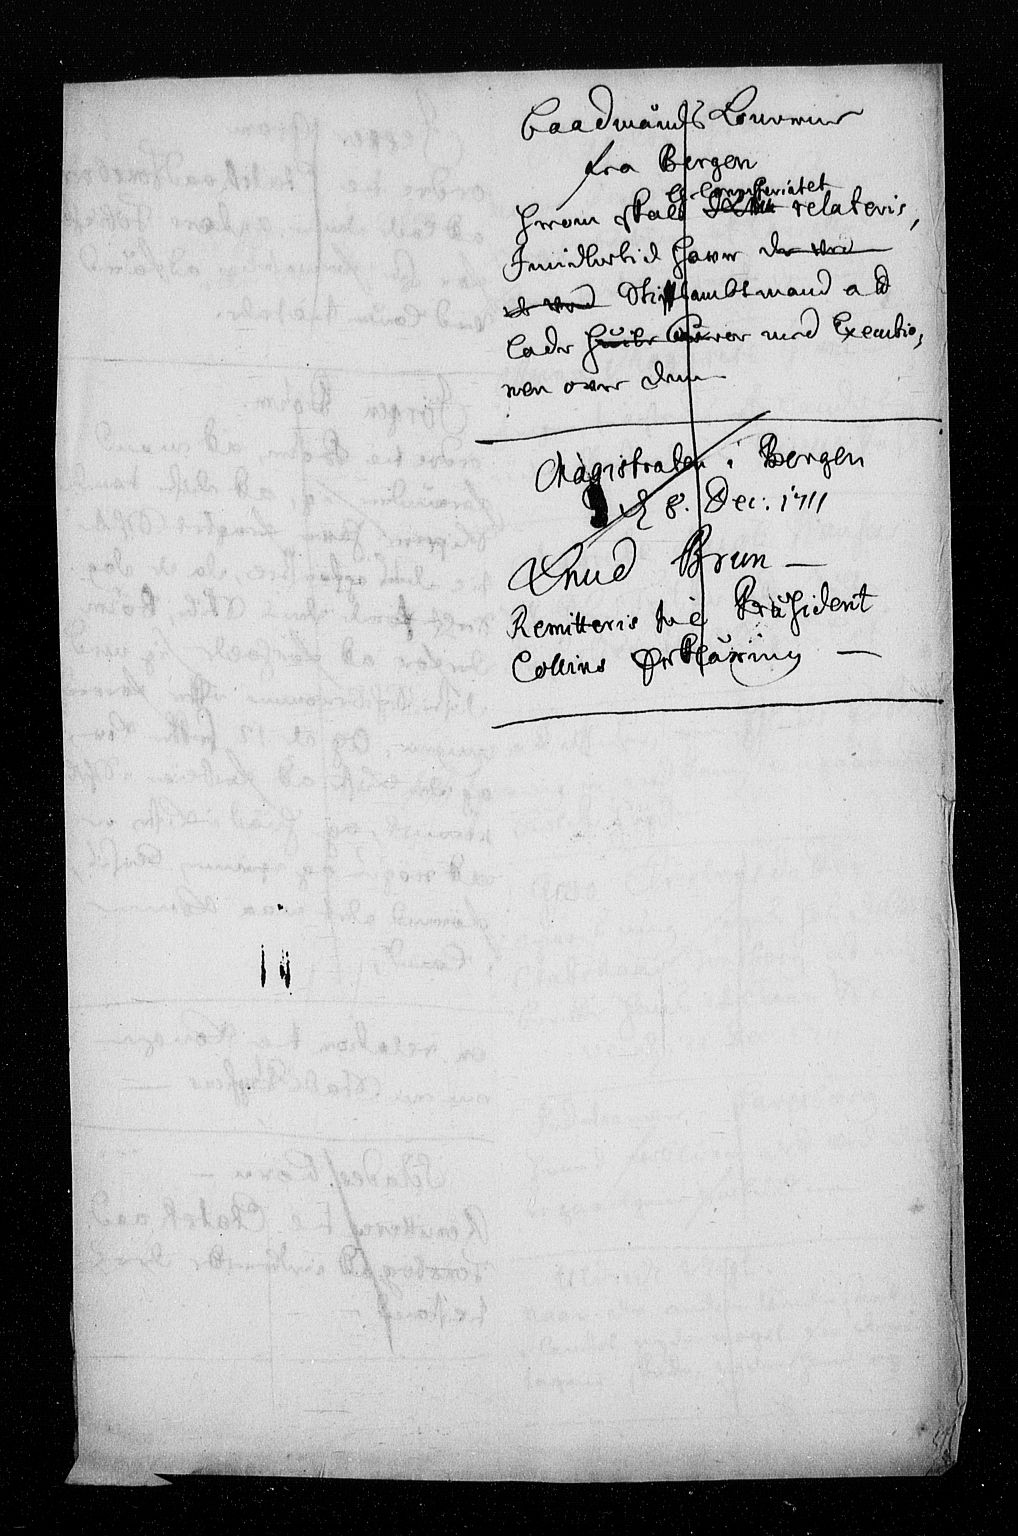 Baadmands
fra Bergen
Hvorom skal Gl. Commissariatet relateris,
Imidlertid haver
Stiftsambtmand ad
lade med Executio-
nen over dem
Magistraten i Bergen
d 8. Dec: 1711
Knud Brun —
Remitteris til Præsident
Collins Erklæring —